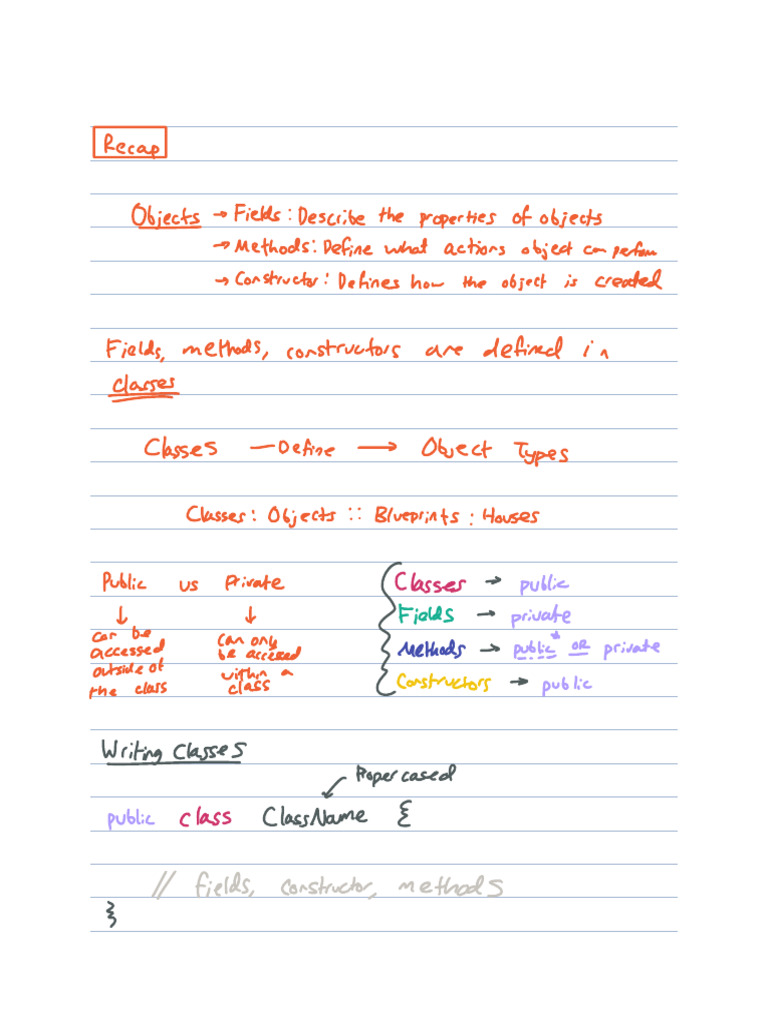 Recap
Objects → Fields: Describe the properties of objects
→ Methods: Define what actions object can perform
→ Constructor: Defines how the object is created
Fields, methods, constructors are defined in
classes
Classes — Define → Object Types
Classes: Objects :: Blueprints: Houses
Public vs Private
↓ ↓
can be accessed outside of the class
can only be accessed within a class
Classes → public
Fields → private
Methods → public* OR private
Constructors → public
Writing Classes
Proper cased
public class ClassName {
// fields, constructor, methods
}